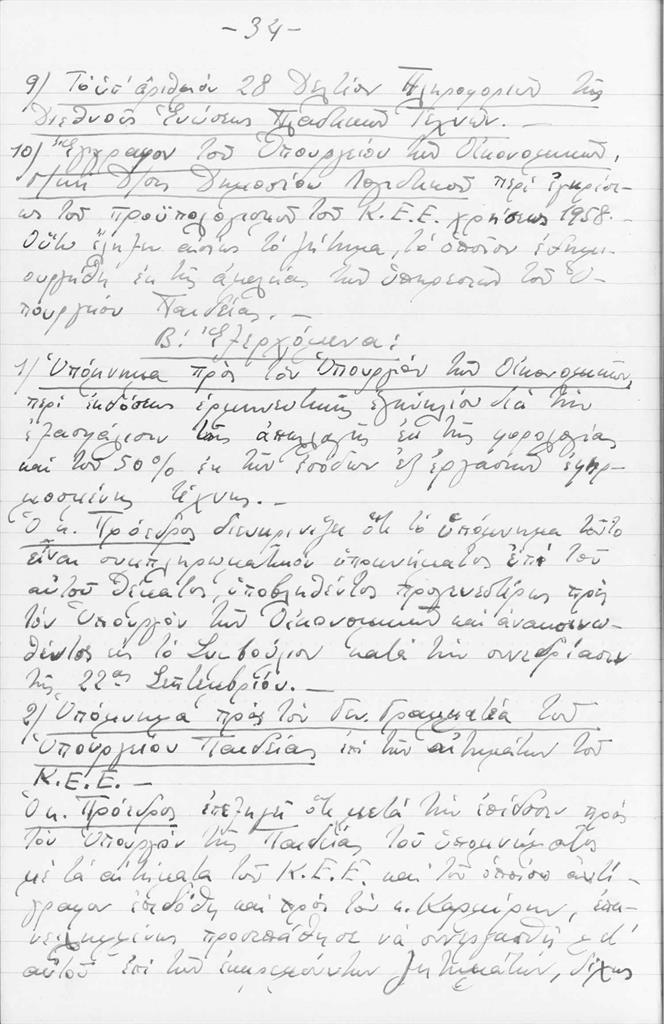 -34-
9) Τὸ ὑπ' ἀριθμόν 28 Δελτίον Πληροφοριῶν τῆς
Διεθνοῦς Ἑνώσεως Πλαστικῶν Τεχνῶν. —
10) Ἔγγραφον τοῦ Ὑπουργείου τῶν Οἰκονομικῶν,
Δ/σις Δημοσίου Λογιστικοῦ περὶ ἐγκρίσε-
ως τοῦ προϋπολογισμοῦ τοῦ Κ.Ε.Ε. χρήσεως 1958.-
Οὕτω ἔληξεν αἰσίως τὸ ζήτημα, τὸ ὁποῖον ἐδημι-
ουργήθη ἐκ τῆς ἀμελείας τῶν ὑπηρεσιῶν τοῦ Ὑ-
πουργείου Παιδείας. —
Β: Ἐξερχόμενα:
1) Ὑπόμνημα πρὸς τὸν Ὑπουργὸν τῶν Οἰκονομικῶν,
περὶ ἐκδόσεως ἑρμηνευτικῆς ἐγκυκλίου διὰ τὴν
ἐξασφάλισιν τῆς ἀπαλλαγῆς ἐκ τῆς φορολογίας
καὶ τοῦ 50% ἐκ τῶν ἐσόδων ἐξ ἐργασιῶν ἐφηρ-
μοσμένης τέχνης. —
Ὁ κ. Πρόεδρος διευκρινίζει ὅτι τὸ ὑπόμνημα τοῦτο
εἶναι συμπληρωματικὸν ὑπομνήματος ἐπὶ τοῦ
αὐτοῦ θέματος, ὑποβληθέντος προγενεστέρως πρὸς
τὸν Ὑπουργὸν τῶν Οἰκονομικῶν καὶ ἀνακοινω-
θέντος εἰς τὸ Συμβούλιον κατὰ τὴν συνεδρίασιν
τῆς 22ας Σεπτεμβρίου. —
2) Ὑπόμνημα πρὸς τὸν Γεν. Γραμματέα τοῦ
Ὑπουργείου Παιδείας ἐπὶ τῶν αἰτημάτων τοῦ
Κ.Ε.Ε. —
Ὁ κ. Πρόεδρος ἐπεξηγεῖ ὅτι μετὰ τὴν ἐπίδοσιν πρὸς
τὸν Ὑπουργὸν τῆς Παιδείας τοῦ ὑπομνήματος
μὲ τὰ αἰτήματα τοῦ Κ.Ε.Ε. καὶ τοῦ ὁποίου ἀντί-
γραφον ἐπεδόθη καὶ πρὸς τὸν κ. Καρμίρην, ἐπα-
νειλημμένως προσεπάθησε νὰ συνεργασθῇ μετ'
αὐτοῦ ἐπὶ τῶν ἐκκρεμούντων ζητημάτων, δίχως